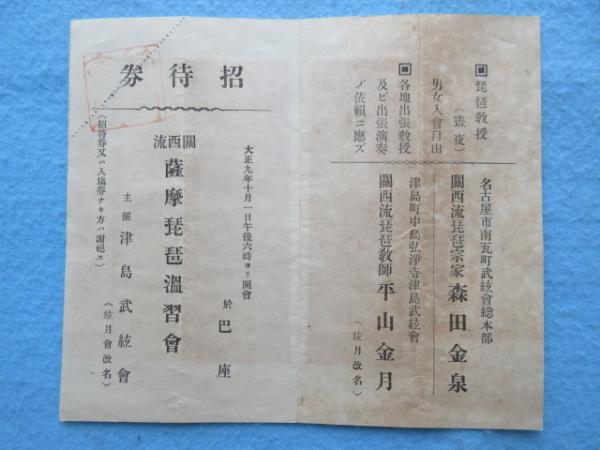 ▣琵琶教授
(晝夜)
男女入會自由
▣各地出張教授
及ビ出張演奏
ノ依頼ニ應ズ
名古屋市南瓦町武絃會總本部
關西流琵琶宗家 森田金泉
津島町中島弘淨寺津島武絃會
關西流琵琶教師 平山金月
(絃月改名)
招待券
大正九年十月一日午後六時ヨリ開會
於 巴座
關西流 薩摩琵琶溫習會
主催 津島武絃會
(絃月會改名)
(招待券又ハ入場券ナキ方ハ謝絕ス)